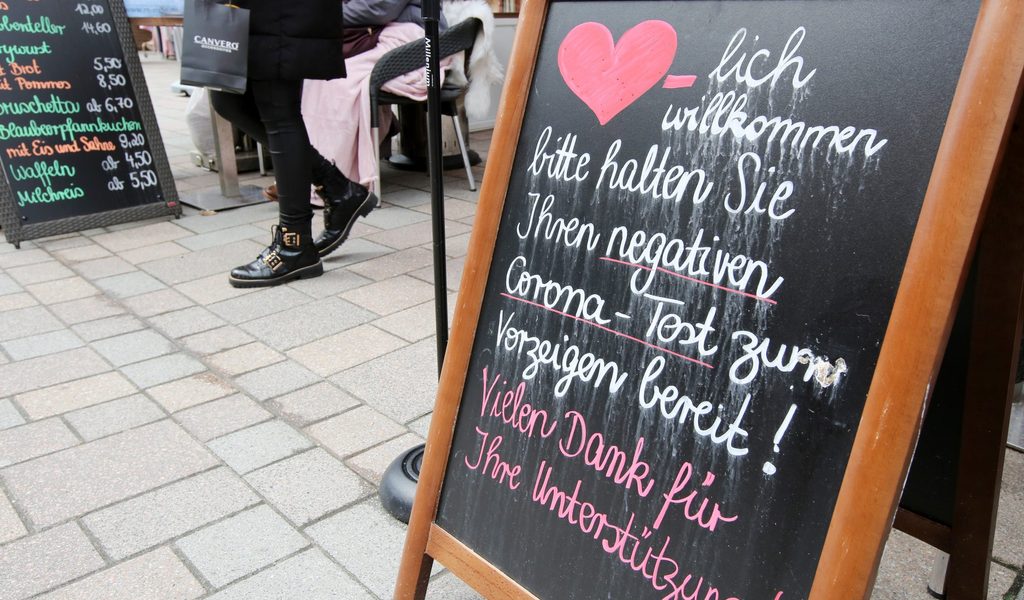 12,00
14,60
5,50
8,50
ab 6,70
Blaubeerpfannkuchen
mit Eis und Sahne 9,20
Waffeln ab 4,50
Milchreis ab 5,50
CANVERO
Millenium
-lich
willkommen
bitte halten Sie
Ihren negativen
Corona-Test zum
Vorzeigen bereit!
Vielen Dank für
Ihre Unterstützung!